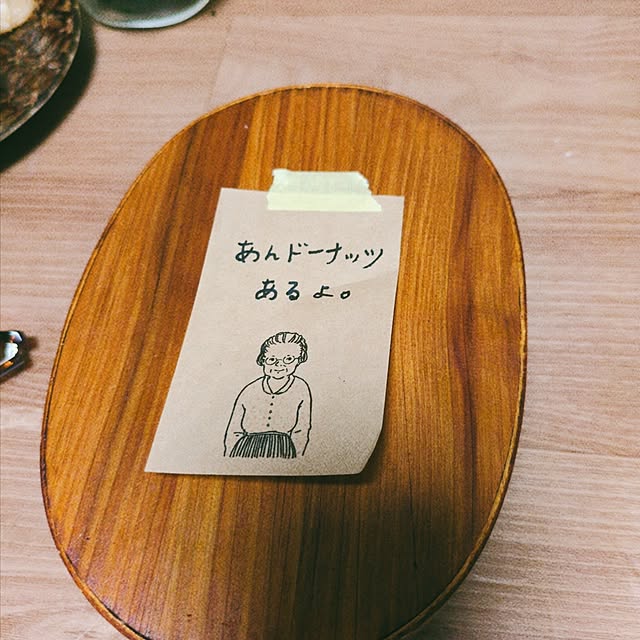 あんドーナッツ
あるよ。